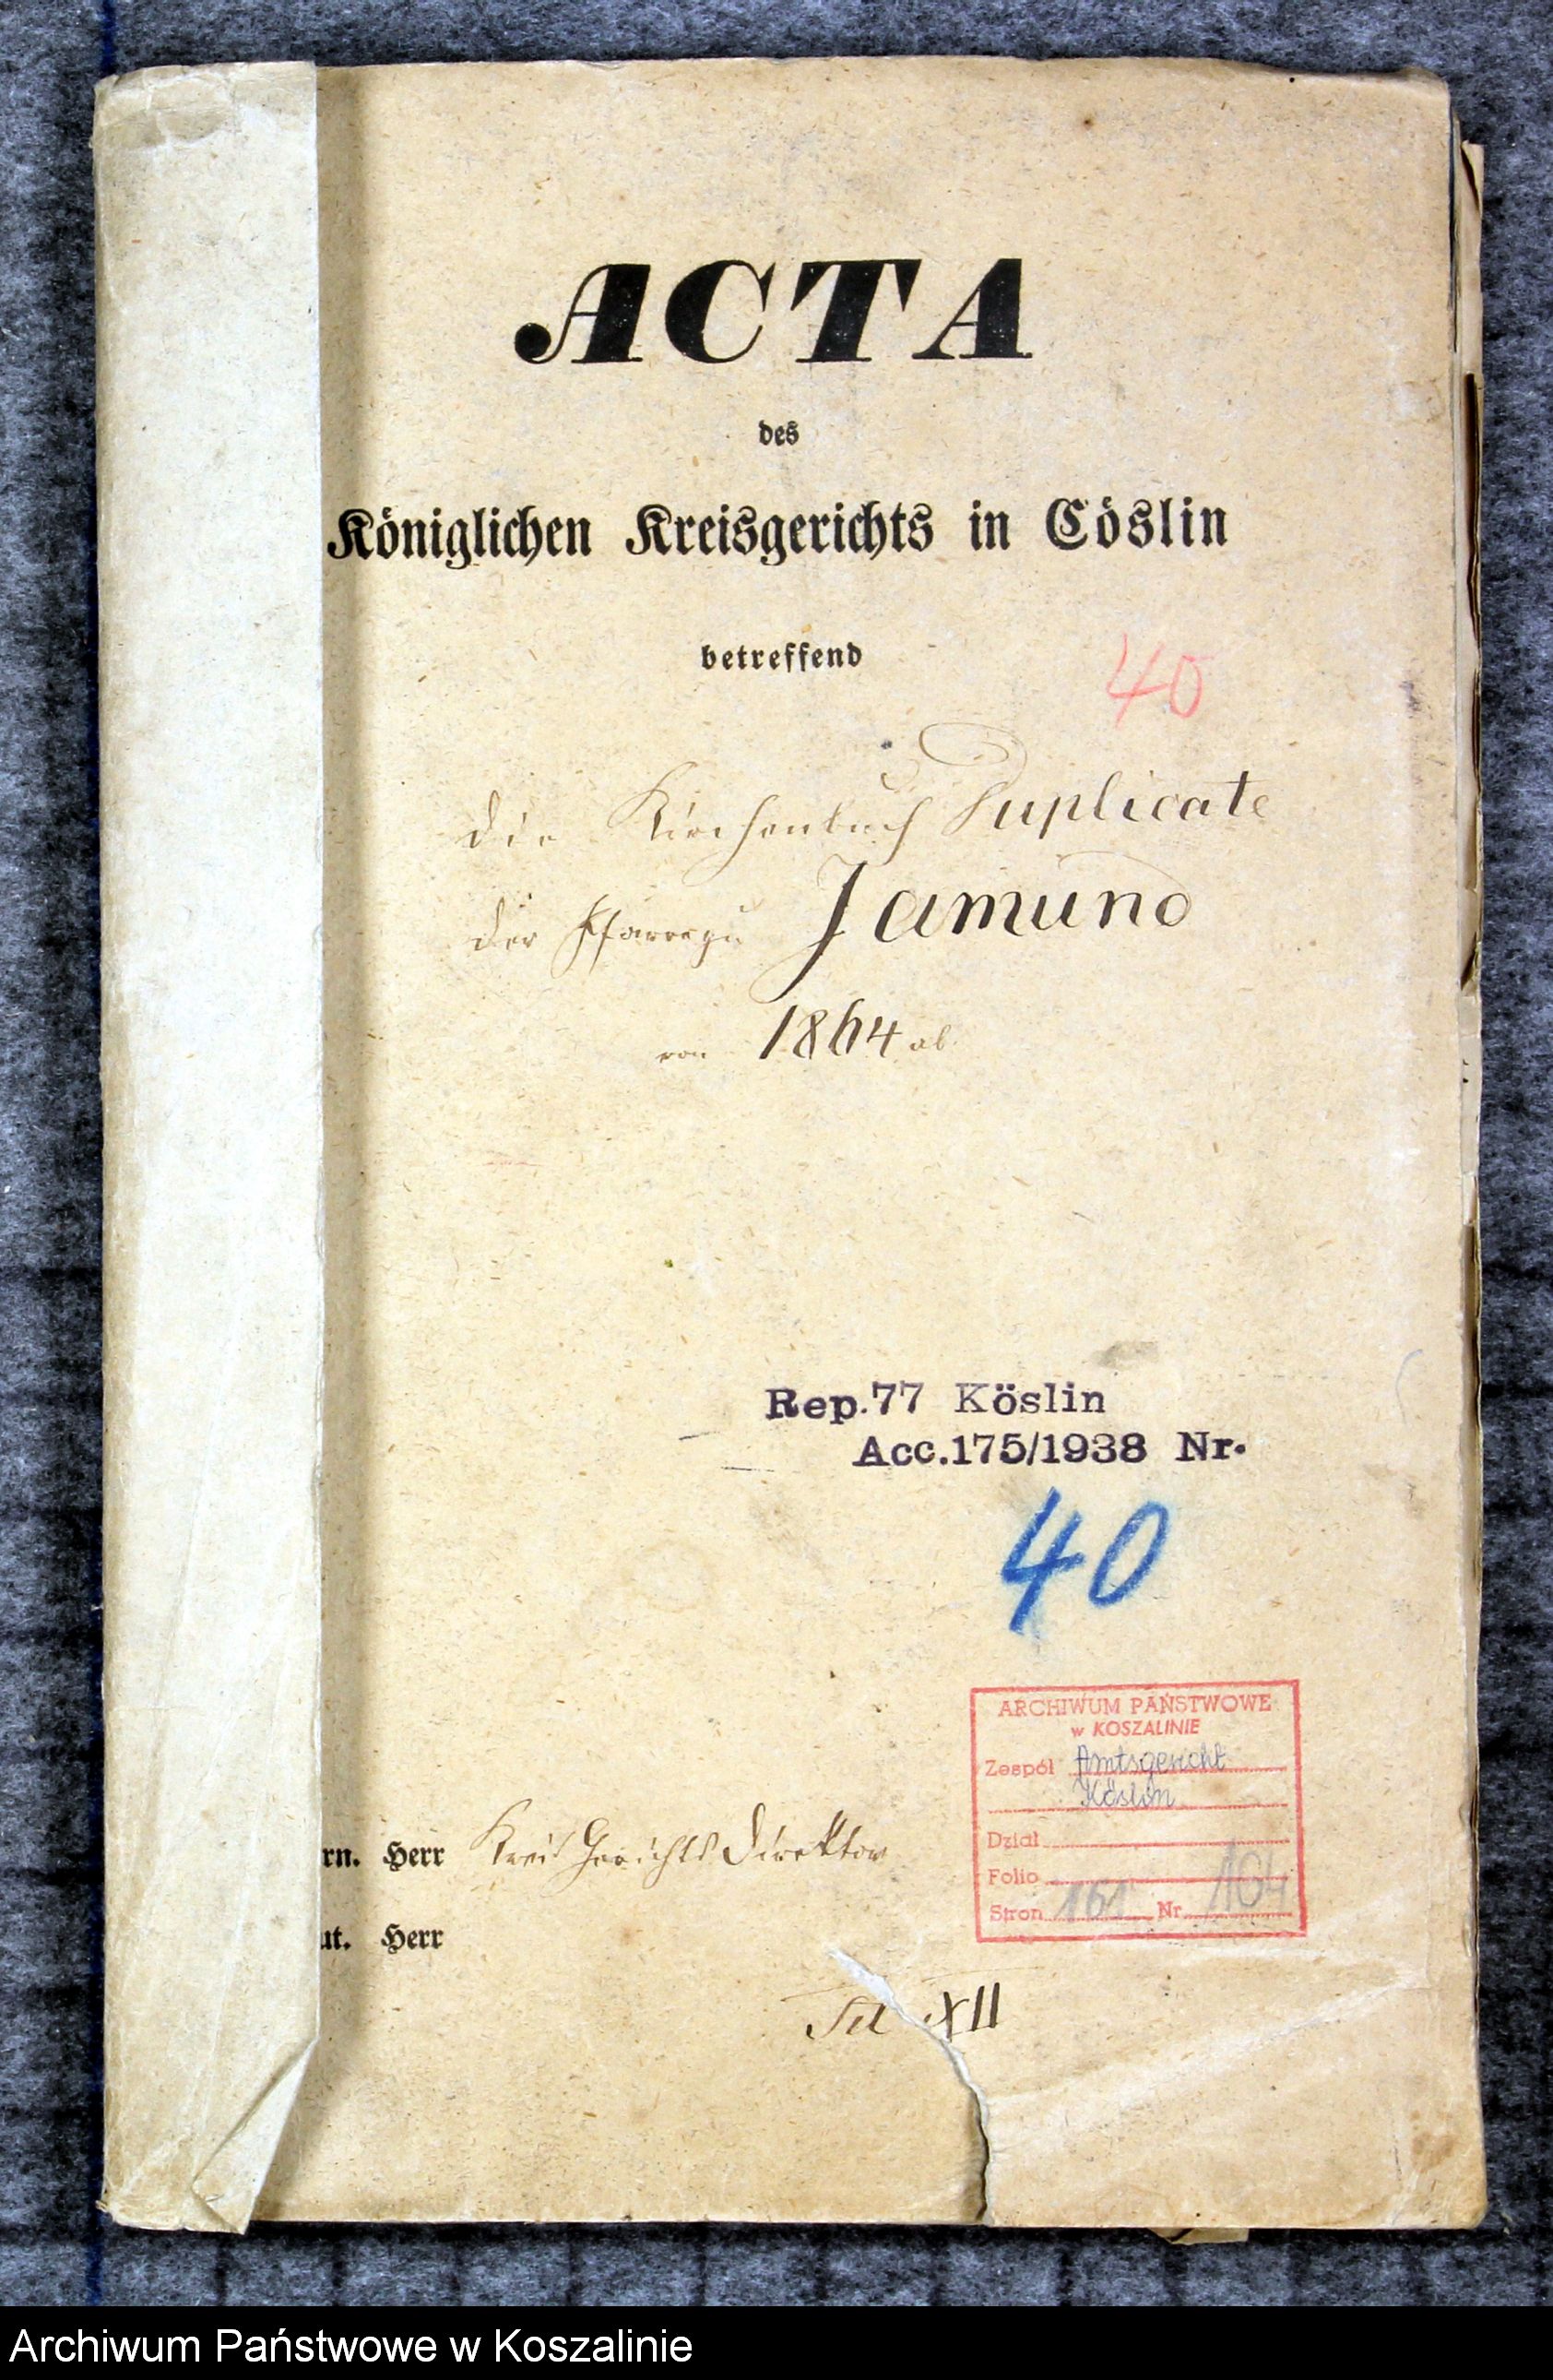 ACTA
des
Königlichen Kreisgerichts in Cöslin
betreffend
40
die Kirchenbuch Duplicate
der Pfarre zu Jamund
von 1864 ab
Rep.77 Köslin
Acc.175/1938 Nr.
40
ARCHIWUM PAŃSTWOWE
w KOSZALINIE
Zespół Amtsgericht
Köslin
Dział
Folio
Stron 161 Nr 104
rn. Herr Kreis Gerichts Direktor
ut. Herr
XII
Archiwum Państwowe w Koszalinie